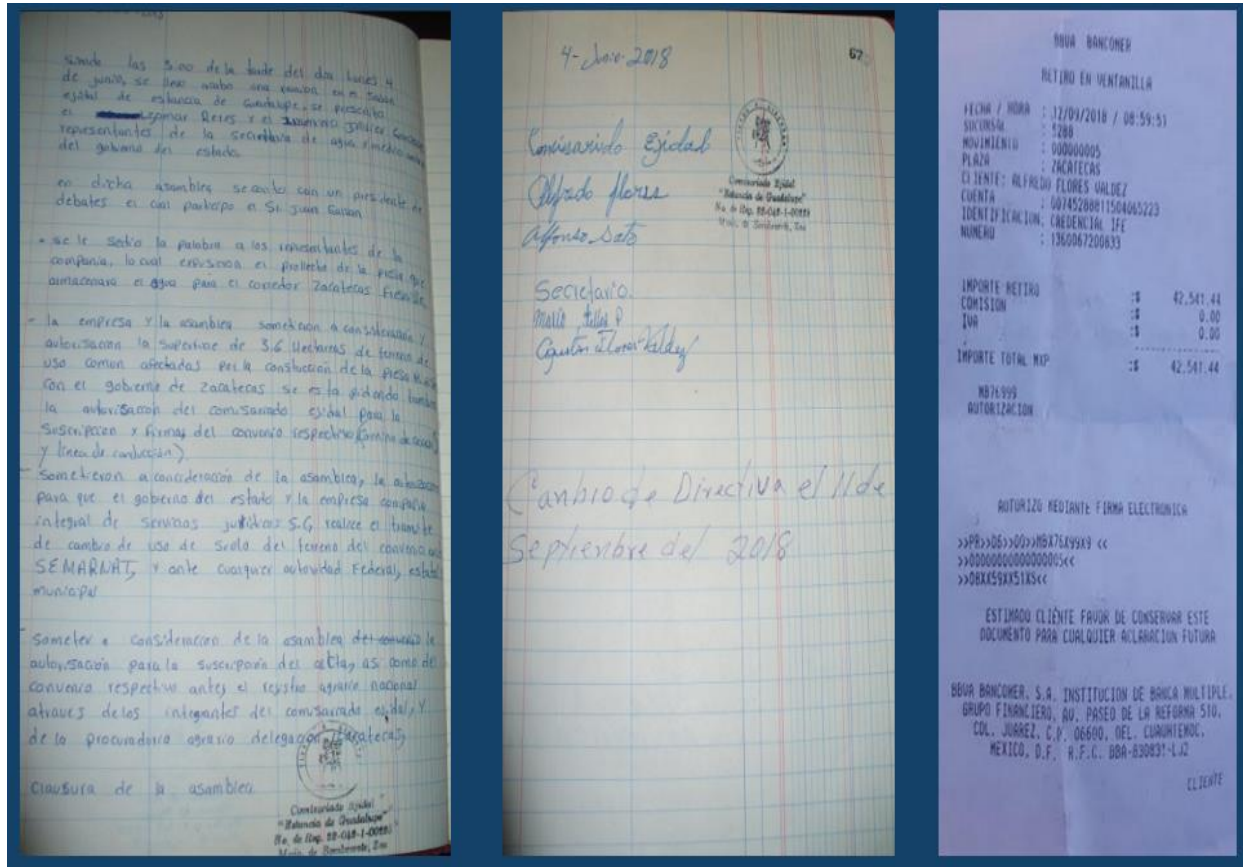 siendo las 5:00 de la tarde del dia lunes 4
de junio, se llevo acabo una reunion en el Salon
ejidal de estancia de Guadalupe, se presento
el Espinar Reres y el Javier
representantes de la secretaria de agua y medio
del gobierno del estado.
en dicha asamblea se conto con un presidente de
debates el cual participo el Sr. Juan Gaitan
se le sedio la palabra a los representantes de la
compania, lo cual expusieron el prollecto de la presa que
almacenara el agua para el corredor Zacatecas Fresnillo
- la empresa y la asamblea sometieron a consideracion y
autorisacion la superficie de 3.6 Hectarras de terreno de
uso comun afectadas por la constuccion de la presa
con el gobierno de Zacatecas se esta pidiendo tambien
la autorisacion del comisariado ejidal para la
suscripcion y firmas del convenio respectivo (camino de acceso
y linea de conduccion)
- Sometieron a concideracion de la asamblea, la autorizacion
para que el gobierno del estado y la empresa compañia
integral de servicios juridicos S.C, realice el tramite
de cambio de uso de suelo del terreno del convenio ante
SEMARNAT, y ante cualquier autoridad Federal, estatal
municipal
- Someter a consideracion de la asamblea del convenio la
autorisación para la suscripcion del acta, asi como del
convenio respectivo antes el registro agrario nacional
atraves de los integantes del comisariado ejidal, y
de la procuraduria agrario delegacion Zacatecas
Clausura de la asamblea
Comisariado Ejidal
"Estancia de Guadalupe"
Mpio. de Sombrerete, Zac
4-Junio-2018
67
Comisariado Ejidal
Alfredo flores
Alfonso Soto
Comisariado Ejidal
"Estancia de Guadalupe"
Mpio. de Sombrerete, Zac
Secretario.
Mario Tellez P
Agustin Flores Valdez
Canbio de Directiva el 11 de
Septienbre del 2018
BBVA BANCOMER
RETIRO EN VENTANILLA
FECHA / HORA : 12/09/2018 / 08:59:51
SUCURSAL : 5288
MOVIMIENTO : 000000005
PLAZA : ZACATECAS
CLIENTE: ALFREDO FLORES VALDEZ
CUENTA : 00745288811504065223
IDENTIFICACION: CREDENCIAL IFE
NUMERO : 1360067200833
IMPORTE RETIRO :$ 42,541.44
COMISION :$ 0.00
IVA :$ 0.00
IMPORTE TOTAL MXP :$ 42,541.44
MB76999
AUTORIZACION
AUTORIZO MEDIANTE FIRMA ELECTRONICA
>>PB>>06>>00>>MBX76X99X9 <<
>>00000000000000005<<
>>08XX59XX51XS<<
ESTIMADO CLIENTE FAVOR DE CONSERVAR ESTE
DOCUMENTO PARA CUALQUIER ACLARACION FUTURA
BBVA BANCOMER, S.A. INSTITUCION DE BANCA MULTIPLE,
GRUPO FINANCIERO, AV. PASEO DE LA REFORMA 510,
COL. JUAREZ, C.P. 06600, DEL. CUAUHTEMOC,
MEXICO, D.F. R.F.C. BBA-830831-LJ2
CLIENTE